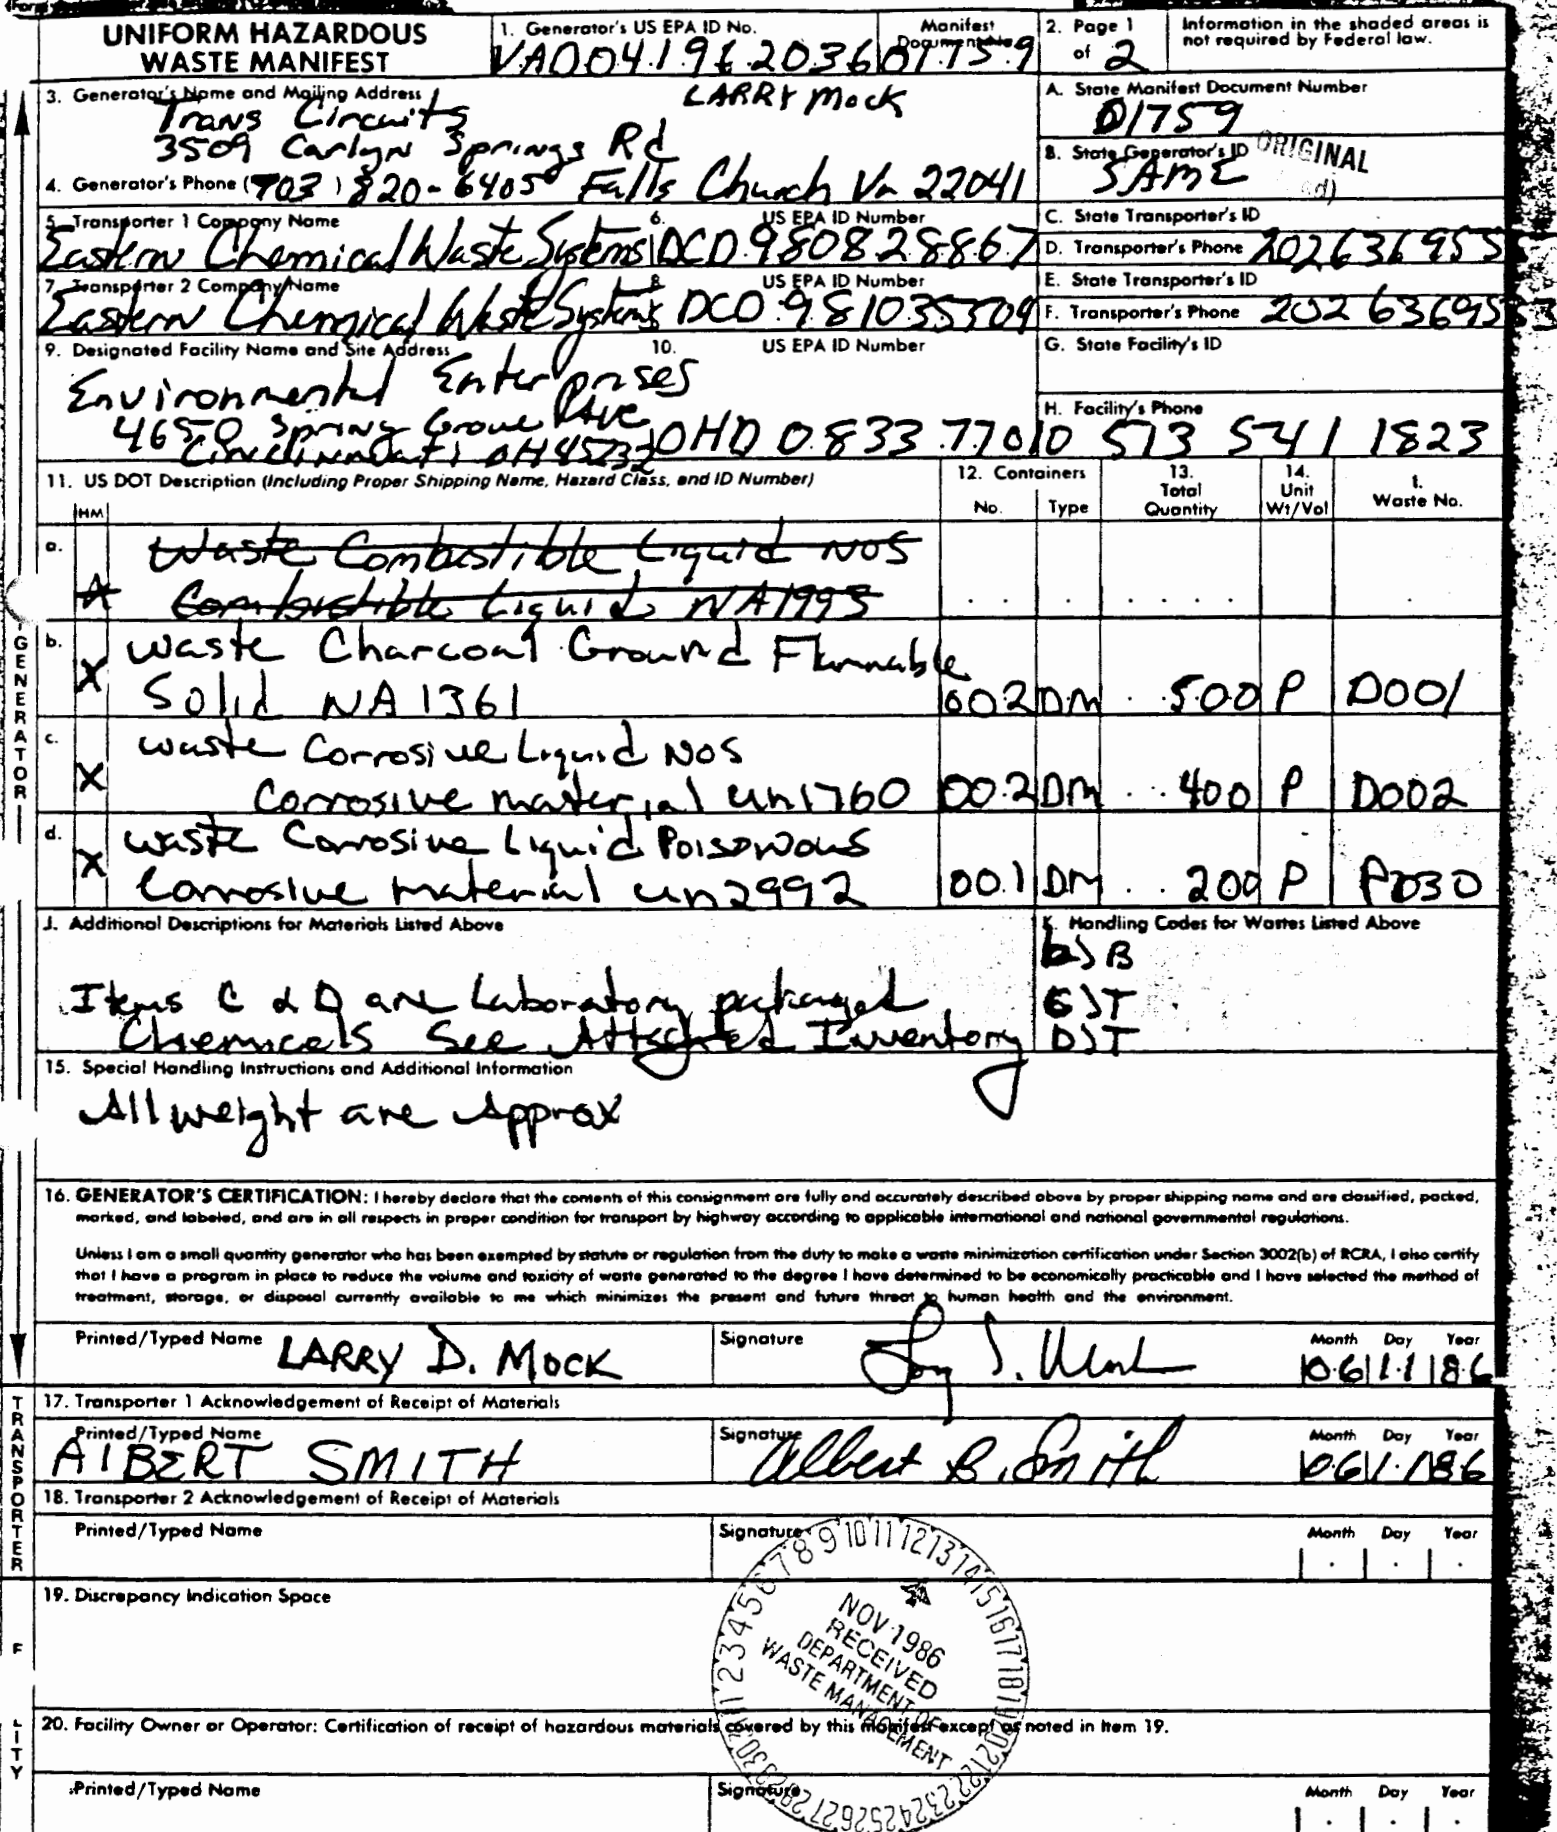 UNIFORM HAZARDOUS
WASTE MANIFEST
1. Generator's US EPA ID No.
Manifest
Document No.
2. Page 1
of 2
Information in the shaded areas is
not required by Federal law.
01759
3. Generator's Name and Mailing Address
LARRY Mock
Trans Circuits
3509 Carlyn Springs Rd
4. Generator's Phone (703) 820-6405 Falls Church Va 22041
A. State Manifest Document Number
01759
B. State Generator's ID
SAME
ORIGINAL
5. Transporter 1 Company Name
6. US EPA ID Number
Eastern Chemical Waste Systems DCD 980828867
C. State Transporter's ID
D. Transporter's Phone 202636955
7. Transporter 2 Company Name
8. US EPA ID Number
Eastern Chemical Waste Systems DCD
E. State Transporter's ID
F. Transporter's Phone 202 63695
9. Designated Facility Name and Site Address
10. US EPA ID Number
Environmental Enterprises
4650 Spring Grove Ave
Cincinnati OH 45232
OHD 083377010
G. State Facility's ID
H. Facility's Phone
513 541 1823
11. US DOT Description (Including Proper Shipping Name, Hazard Class, and ID Number)
HM
12. Containers
No. Type
13.
Total
Quantity
14.
Unit
Wt/Vol
I.
Waste No.
a. Waste Combustible Liquid NOS
Combustible Liquid NA1993
b. Waste Charcoal Ground Flammable
X Solid NA 1361 002 DM 500 P D001
c. Waste Corrosive Liquid NOS
X Corrosive material UN1760 002 DM 400 P D002
d. Waste Corrosive Liquid Poisonous
X Corrosive material UN2992 001 DM 200 P P030
J. Additional Descriptions for Materials Listed Above
Items C & D are Laboratory packaged
Chemicals See Attached Inventory
K. Handling Codes for Wastes Listed Above
b) B
C) T
D) T
15. Special Handling Instructions and Additional Information
All weight are Approx
16. GENERATOR'S CERTIFICATION: I hereby declare that the contents of this consignment are fully and accurately described above by proper shipping name and are classified, packed,
marked, and labeled, and are in all respects in proper condition for transport by highway according to applicable international and national governmental regulations.
Unless I am a small quantity generator who has been exempted by statute or regulation from the duty to make a waste minimization certification under Section 3002(b) of RCRA, I also certify
that I have a program in place to reduce the volume and toxicity of waste generated to the degree I have determined to be economically practicable and I have selected the method of
treatment, storage, or disposal currently available to me which minimizes the present and future threat to human health and the environment.
Printed/Typed Name LARRY D. MOCK
Signature
Month Day Year
06 11 86
17. Transporter 1 Acknowledgement of Receipt of Materials
Printed/Typed Name
ALBERT SMITH
Signature
Albert B. Smith
Month Day Year
06 11 86
18. Transporter 2 Acknowledgement of Receipt of Materials
Printed/Typed Name
Signature
Month Day Year
19. Discrepancy Indication Space
NOV 1986
RECEIVED
DEPARTMENT OF
WASTE MANAGEMENT
1 2 3 4 5 6 7 8 9 10 11 12 13 14 15 16 17 18 19 20 21 22 23 24 25 26 27 28 29 30 31
20. Facility Owner or Operator: Certification of receipt of hazardous materials covered by this manifest except as noted in Item 19.
Printed/Typed Name
Signature
Month Day Year
GENERATOR
TRANSPORTER
F
LITY